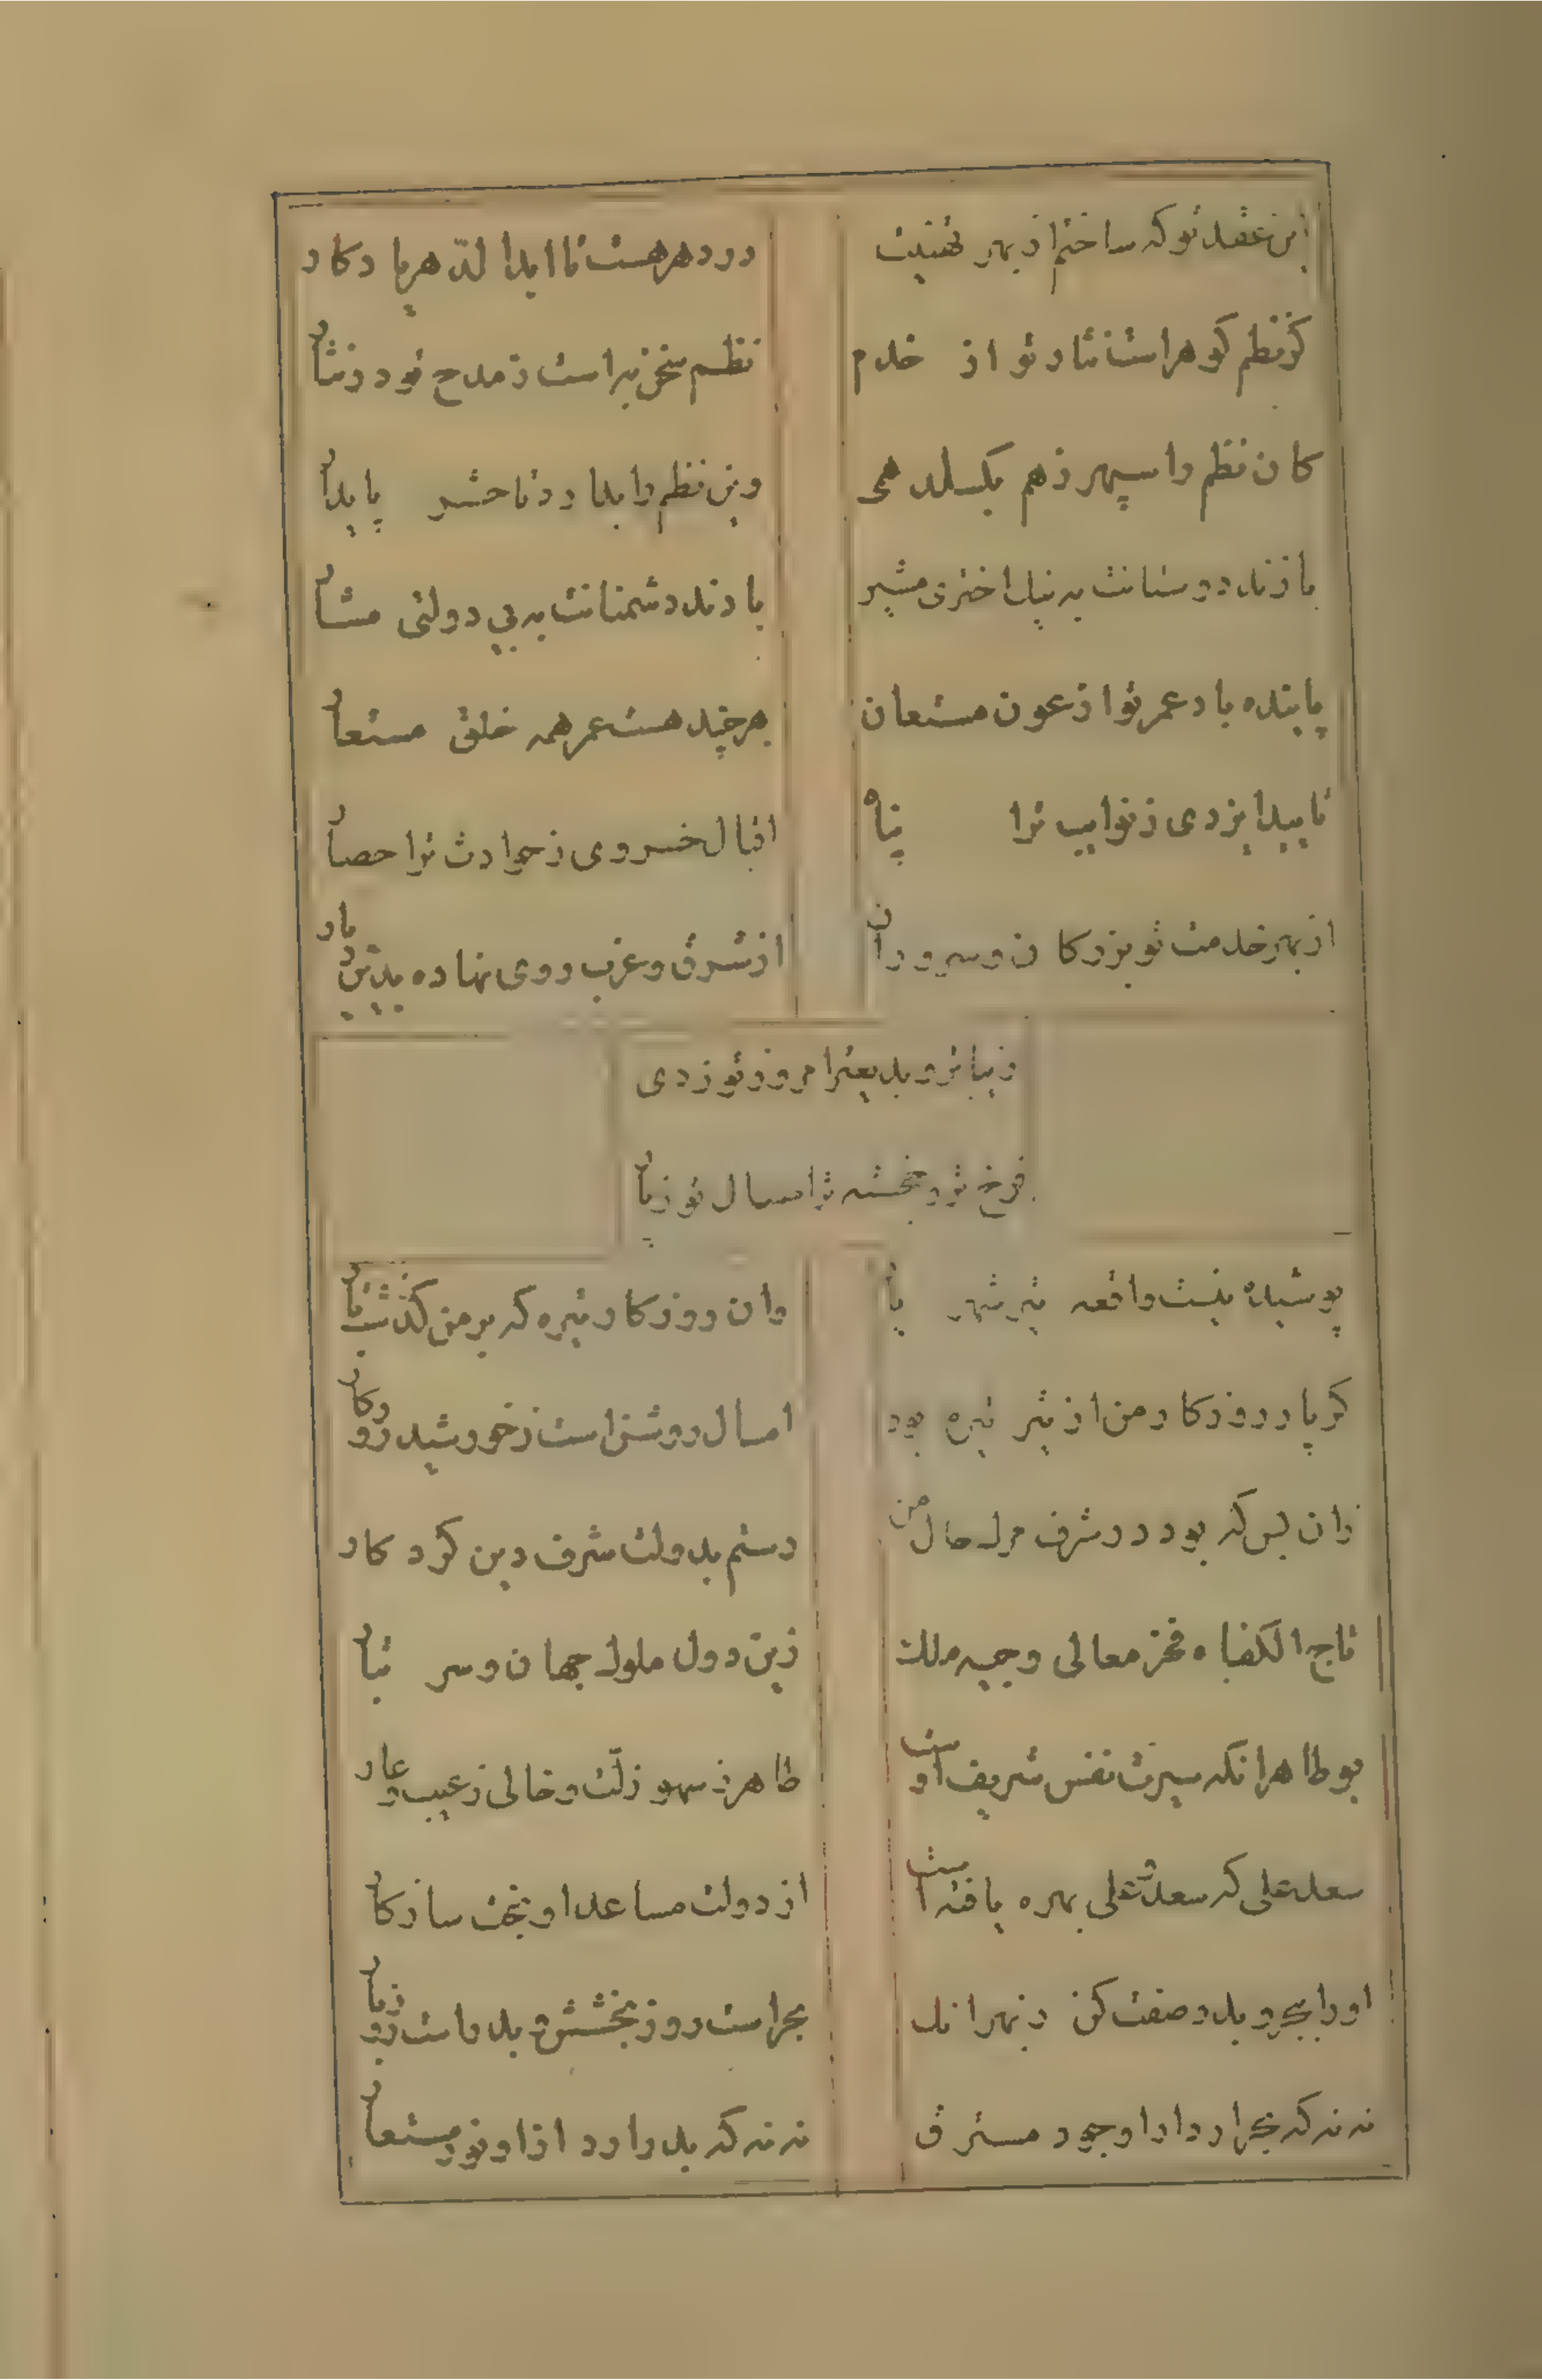 این عقد نو که ساختم از بهر تهنیت
در دهر هست تا ابدالدّهر یادکار
کز نظم کوهر است نثار تو از خدم
نظم سخن به است ز مدح تو در نثار
کان نظم را سپهر ز هم بکسلد همی
وین نظم را بدارد تا حشر پایدار
بازند دوستانت به نیک اختری مشیر
بادند دشمنانت به بی دولتی مشار
پاینده باد عمر تو از عون مستعان
هرچند هست عمر همه خلق مستعار
تایید ایزدی ز نوایب ترا پناه
اقبال خسروی ز حوادث ترا حصار
از بهر خدمت تو بزرکان و سروران
از شرق و غرب روی نهاده بدین دیار
زیباتر و بدیع‌تر امروز تو ز دی
فرخ‌تر و خجسته‌تر امسال تو ز پار
پوشیده نیست واقعه تیر شهر پار
وان روزکار تیره که بر من کذشت پار
کر پار روزکار من از تیر تیره بود
امسال روشن است ز خورشید روزکار
زان پس که بود در شرف مرک حال من
دستم بدولت شرف دین کرد کار
تاج الکفاه فخر معالی وجیه ملک
زین دول ملوک جهان و سر تبار
بوطاهر انکه سیرت نفس شریف اوست
طاهر ز سهو و زلّت و خالی ز عیب و عار
سعد علی که سعد و علی بهره یافته است
از دولت مساعد او بخت سازکار
او را ببحر و بدر صفت کن ز بهر انک
بحر است روز بخشش و بدر است روز بار
نه نه که بحر دارد از او جود مسترق
نه نه که بدر دارد از او نور مستعار